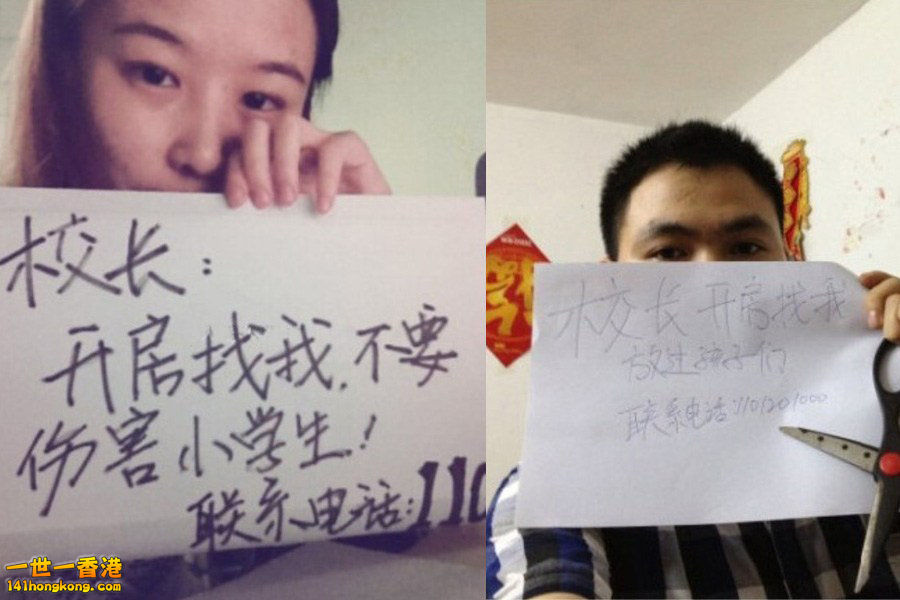 校长：
开房找我，不要
伤害小学生！
联系电话：110
校长 开房找我
放过孩子们
联系电话：110120
一世一香港
141hongkong.com